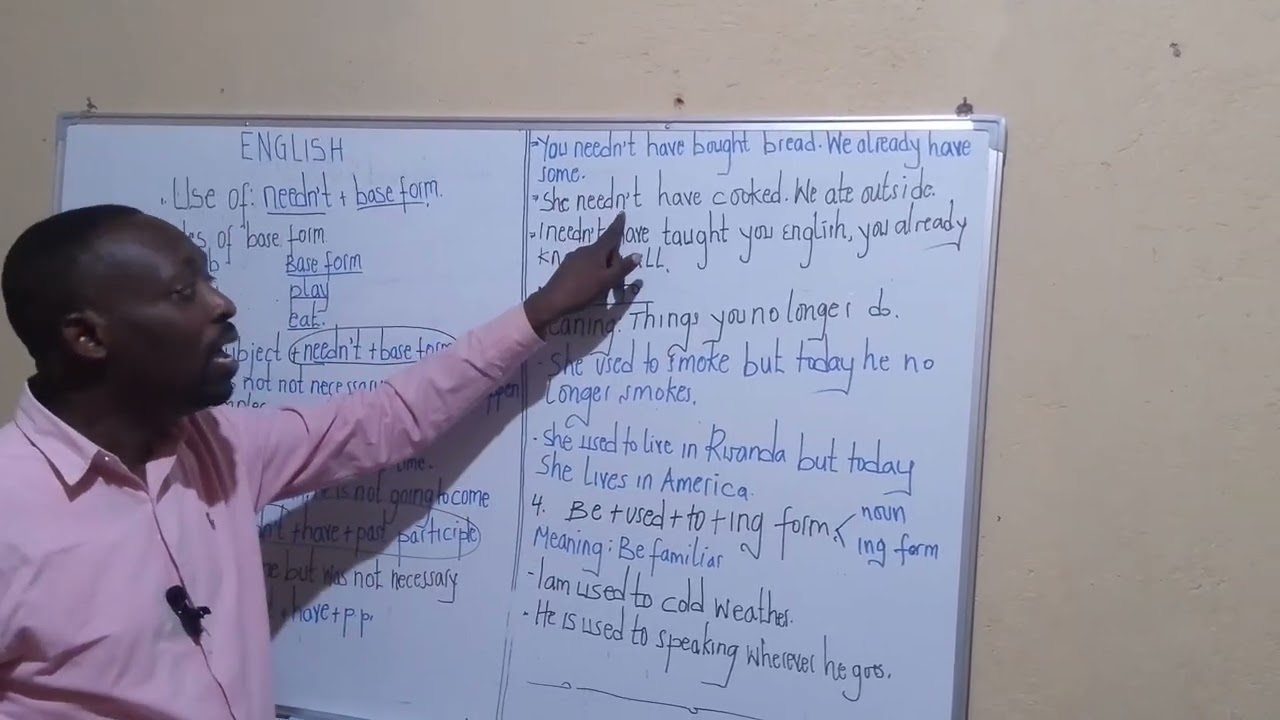 ENGLISH
Use of: needn't + base form.
of base form.
Base form
play
eat.
subject + needn't + base form
not not necessary
time.
is not going to come
+ have + past participle
but was not necessary
+ have + p.p.
- You needn't have bought bread. We already have
some.
- She needn't have cooked. We ate outside.
- I needn't have taught you English, you already
Meaning: Things you no longer do.
- She used to smoke but today he no
longer smokes.
- She used to live in Rwanda but today
She Lives in America.
4. Be + used + to + ing form < noun
ing form
Meaning: Be familiar
- I am used to cold weather.
- He is used to speaking wherever he goes.